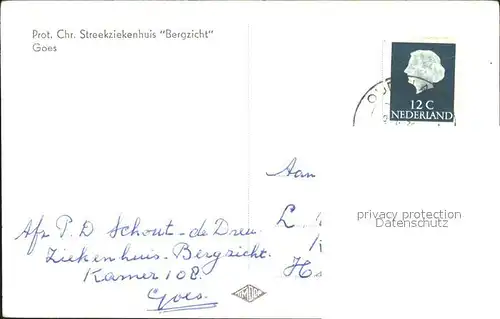 Prot. Chr. Streekziekenhuis "Bergzicht"
Goes
12 C
NEDERLAND
Aan
L.
H
privacy protection
Datenschutz
Afz P. D Schout-de Dreu.
Ziekenhuis-Bergzicht.
Kamer 108.
Goes.